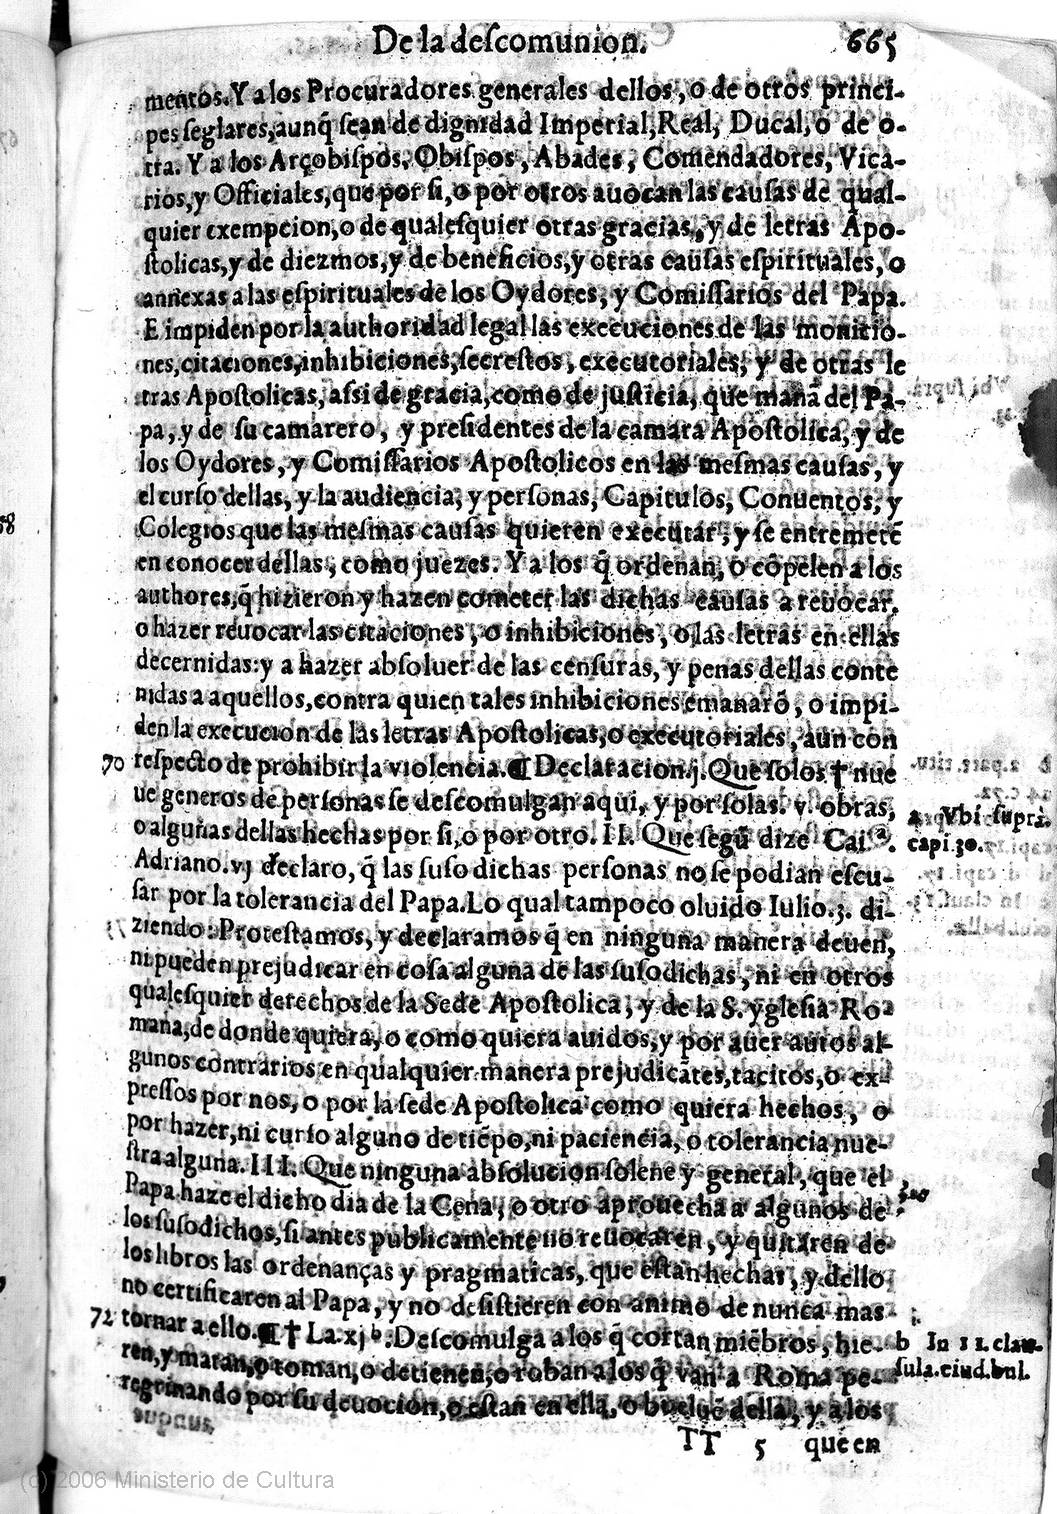 De la descomunion. 665
mentos. Y a los Procuradores generales dellos, o de otros princi-
pes seglares, aunq̃ sean de dignidad Imperial, Real, Ducal, o de o-
tra. Y a los Arçobispos, Obispos, Abades, Comendadores, Vica-
rios, y Officiales, que por si, o por otros auocan las causas de qual-
quier exempcion, o de qualesquier otras gracias, y de letras Apo-
stolicas, y de diezmos, y de beneficios, y otras causas espirituales, o
annexas a las espirituales de los Oydores, y Comissarios del Papa.
E impiden por la authoridad legal las execuciones de las monicio-
nes, citaciones, inhibiciones, secrestos, executoriales, y de otras le
tras Apostolicas, assi de gracia, como de justicia, que manã del Pa-
pa, y de su camarero, y presidentes de la camara Apostolica, y de
los Oydores, y Comissarios Apostolicos en las mesmas causas, y
el curso dellas, y la audiencia, y personas, Capitulos, Conuentos, y
Colegios que las mesmas causas quieren executar, y se entremetẽ
en conocer dellas, como juezes. Y a los q̃ ordenan, o cõpelen a los
authores, q̃ hizieron y hazen cometer las dichas causas a reuocar,
o hazer reuocar las citaciones, o inhibiciones, o las letras en ellas
decernidas: y a hazer absoluer de las censuras, y penas dellas conte
nidas a aquellos, contra quien tales inhibiciones emanarõ, o impi-
den la execucion de las letras Apostolicas, o executoriales, aun con
70 respecto de prohibir la violencia. ¶ Declaracion. j. Que solos † nue
ue generos de personas se descomulgan aqui, y por solas. v. obras,
o algunas dellas hechas por si, o por otro. II. Que segũ dize Cai.ª.
a Vbi suprà.
capi. 30.
Adriano. vj declaro, q̃ las suso dichas personas no se podian escu-
sar por la tolerancia del Papa. Lo qual tampoco oluido Iulio. 3. di-
ziendo: Protestamos, y declaramos q̃ en ninguna manera deuen,
ni pueden prejudicar en cosa alguna de las susodichas, ni en otros
qualesquier derechos de la Sede Apostolica, y de la S. yglesia Ro-
mana, de donde quiera, o como quiera auidos, y por auer autos al-
gunos contrarios en qualquier manera prejudicãtes, tacitos, o ex-
pressos por nos, o por la sede Apostolica como quiera hechos, o
por hazer, ni curso alguno de tiẽpo, ni paciencia, o tolerancia nue-
stra alguna. III. Que ninguna absolucion solene y general, que el
Papa haze el dicho dia de la Cena, o otro aprouecha a algunos de
los susodichos, si antes publicamente no reuocaren, y quitaren de
los libros las ordenanças y pragmaticas, que estan hechas, y dello
no certificaren al Papa, y no desistieren con animo de nunca mas
72 tornar a ello. ¶ † La. xj ᵇ. Descomulga a los q̃ cortan miẽbros, hie-
b In 11. clau-
sula. eiusd. bul.
ren, y matan, o toman, o detienen, o roban a los q̃ van a Roma pe-
regrinando por su deuocion, o estan en ella, o buelue della, y a los
TT 5 que en
58
(c) 2006 Ministerio de Cultura